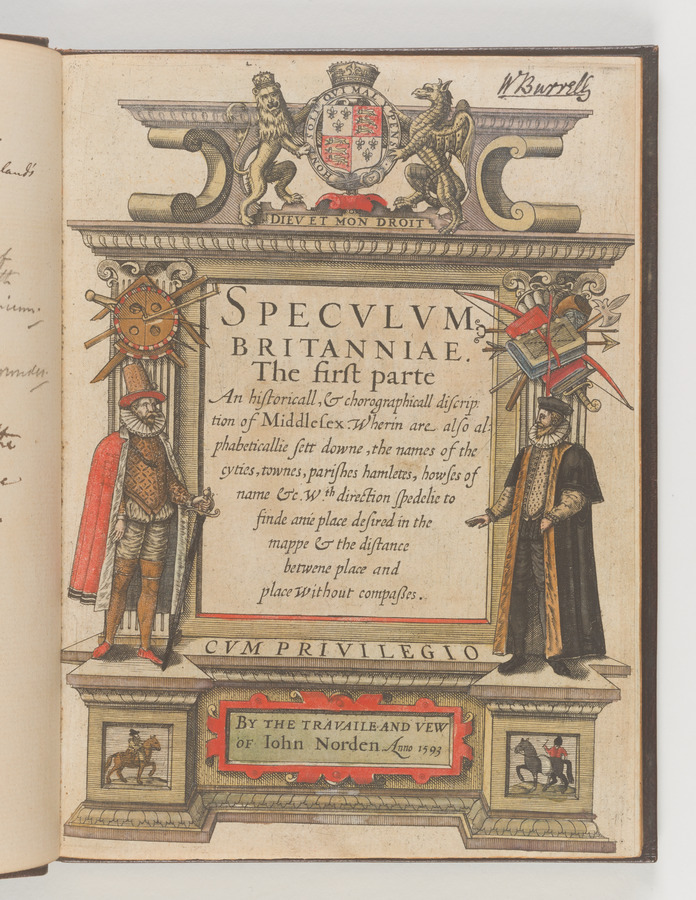 W Burrell
HONI SOIT QVI MAL Y PENSE
DIEV ET MON DROIT
SPECVLVM
BRITANNIAE.
The first parte
An historicall, & chorographicall discrip:
tion of Middlesex. Wherin are also al:
phabeticallie sett downe, the names of the
cyties, townes, parishes hamletes, howses of
name &c. Wth direction spedelie to
finde anie place desired in the
mappe & the distance
betwene place and
place without compasses.
CVM PRIVILEGIO
BY THE TRAVAILE AND VEW
OF Iohn Norden Anno 1593